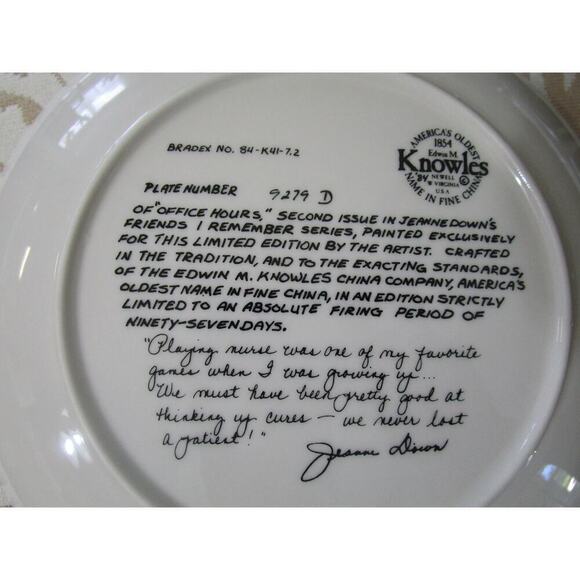 BRADEX NO. 84-K41-7.2
AMERICA'S OLDEST
1854
Edwin M.
Knowles
"BY NEWELL ©
W VIRGINIA
U.S.A
NAME IN FINE CHINA
PLATE NUMBER 9279 D
OF "OFFICE HOURS," SECOND ISSUE IN JEANNE DOWN'S
FRIENDS I REMEMBER SERIES, PAINTED EXCLUSIVELY
FOR THIS LIMITED EDITION BY THE ARTIST. CRAFTED
IN THE TRADITION, AND TO THE EXACTING STANDARDS,
OF THE EDWIN M. KNOWLES CHINA COMPANY, AMERICA'S
OLDEST NAME IN FINE CHINA, IN AN EDITION STRICTLY
LIMITED TO AN ABSOLUTE FIRING PERIOD OF
NINETY-SEVEN DAYS.
"Playing nurse was one of my favorite
games when I was growing up...
We must have been pretty good at
thinking up cures — we never lost
a patient!"
Jeanne Down